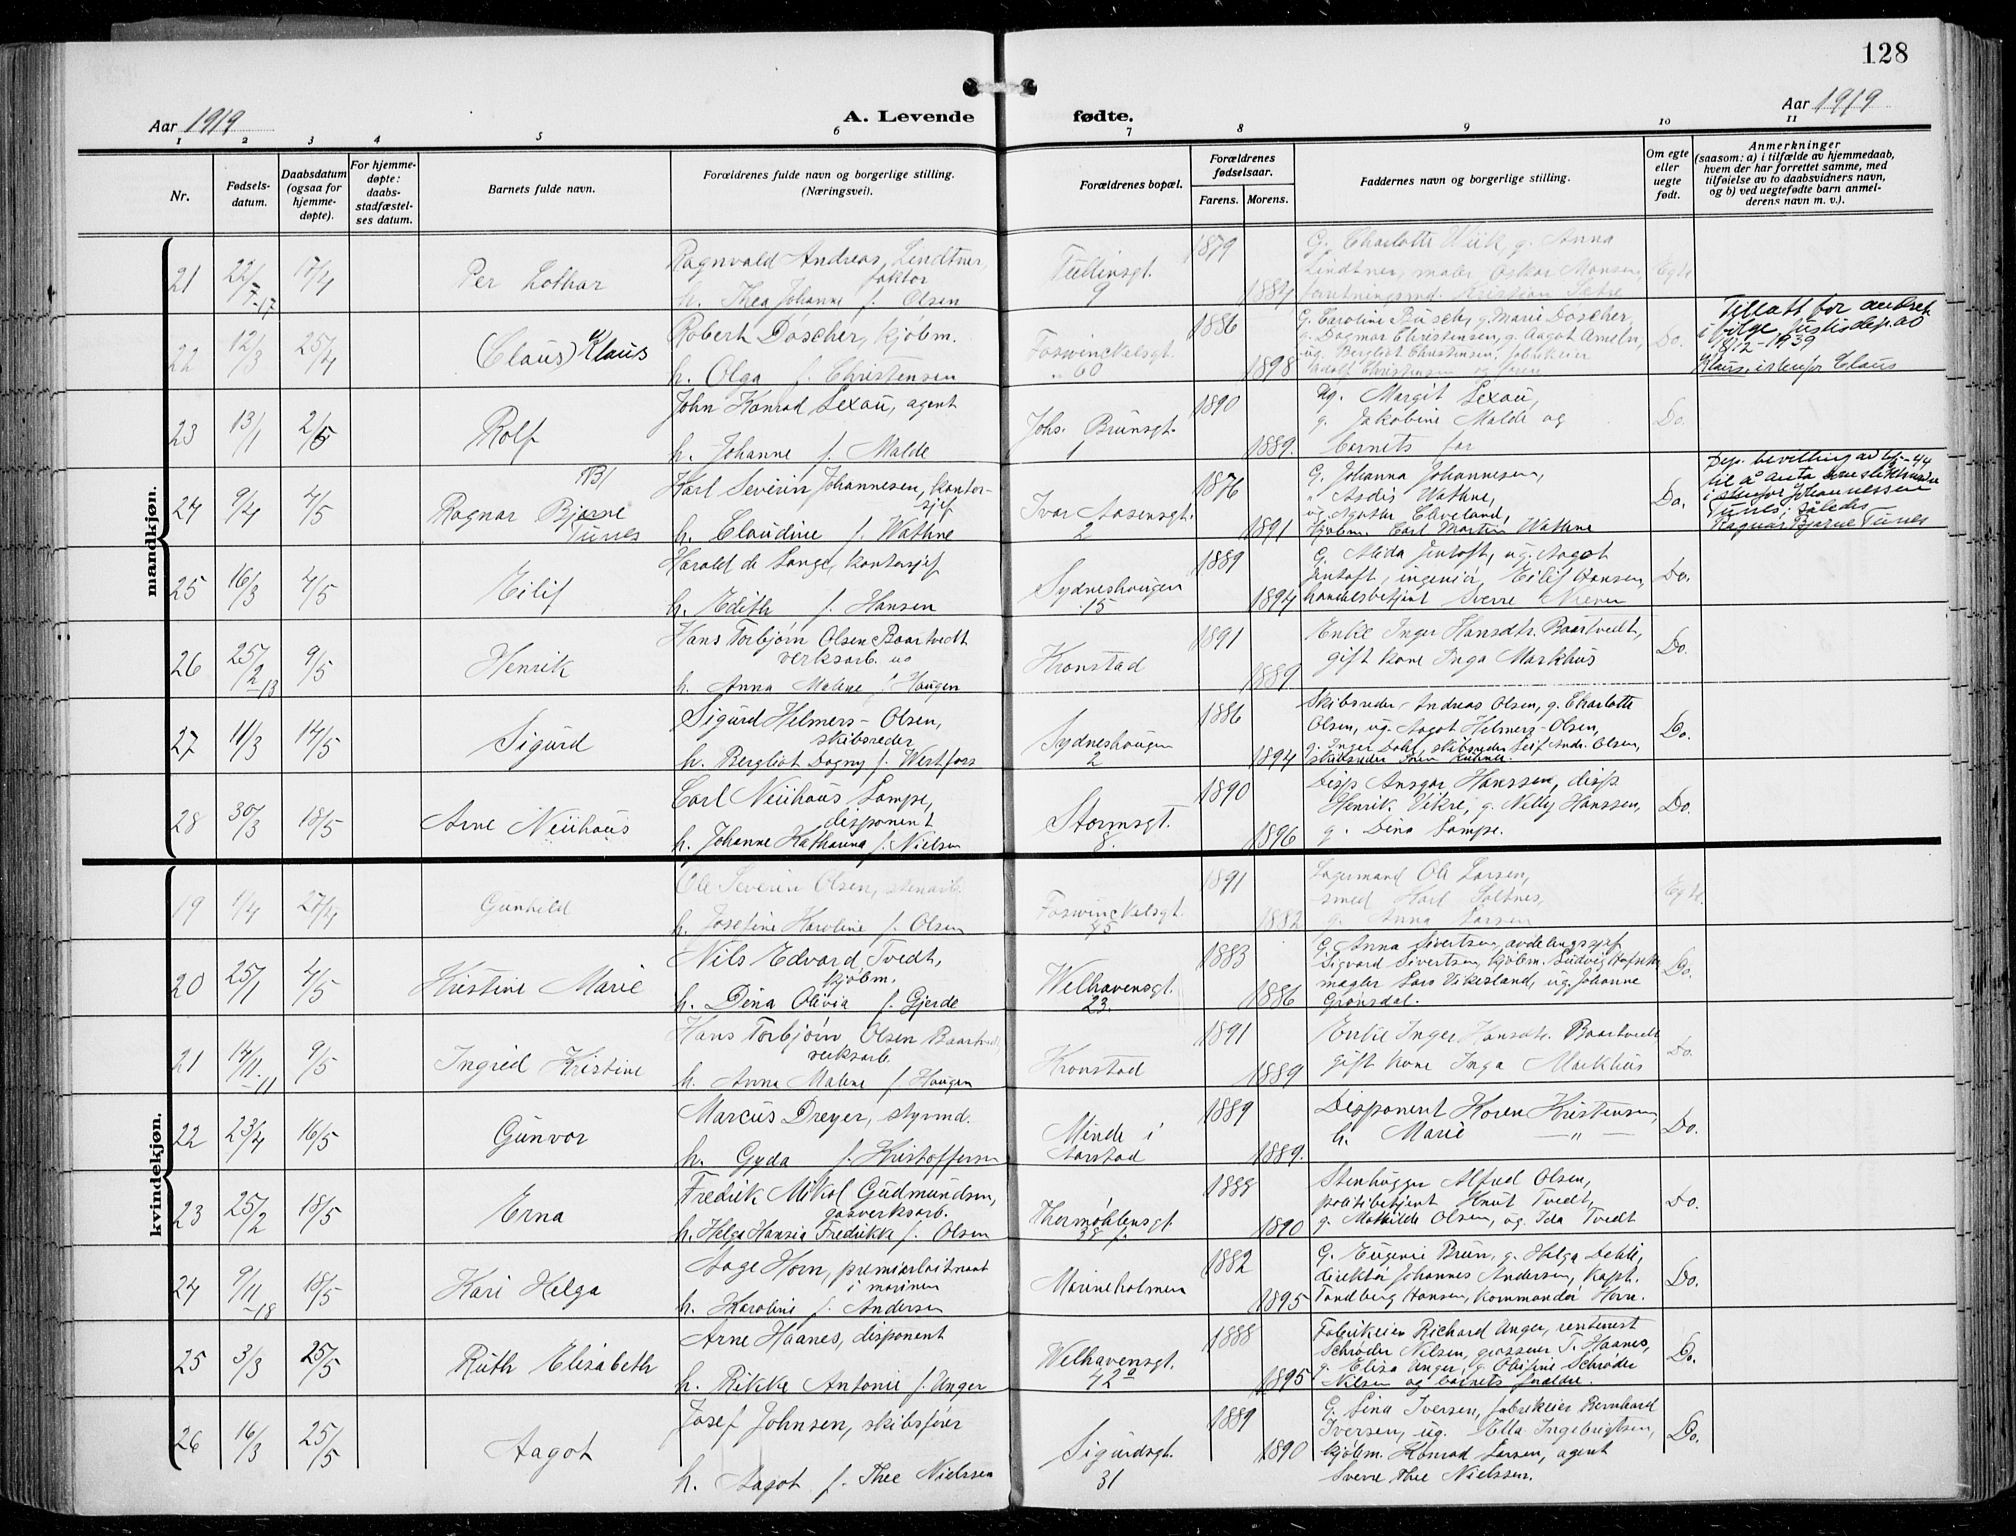 128
Aar 1919
A. Levende fødte.
Aar 1919
1 2 3 4 5 6 7 8 9 10 11
Nr.
Fødsels-datum.
Daabsdatum (ogsaa for hjemme-døpte).
For hjemme-døpte: daabs-stadfæstel-ses datum.
Barnets fulde navn.
Forældrenes fulde navn og borgerlige stilling. (Næringsvei).
Forældrenes bopæl.
Forældrenes fødselsaar.
Farens. Morens.
Faddernes navn og borgerlige stilling.
Om egte eller uegte født.
Anmerkninger
(saasom: a) i tilfælde av hjemmedaab, hvem der har forrettet samme, med tilføielse av to daabsvidners navn, og b) ved uegtefødte barn anmel-derens navn m. v.).
mandkjøn.
21 22/7-17 17/4 Per Lothar
Ragnvald Andreas Lindtner, faktor
h. Thea Johanne f. Olsen
Tullinsgt. 9
1879 1884
G. Charlotte Wiik g. Anna
Lindtner, maler Oskar Monsen,
forretningsmd. Kristian Sætre
Egte
22 12/3 25/4 (Claus) Klaus
Robert Döscher, kjøbm.
h. Olga f. Christensen
Foswinckelsgt. 60
1886 1898
G. Caroline Busch, g. Marie Döscher,
g. Dagmar Christensen, g. Aagot Ameln,
ug. Bergliot Christensen, fabrikeier
Adolf Christensen og faren
Do.
Tillatt forandret
i følge justisdep. av
18/12-1939
Klaus istenfor Claus
23 13/1 2/5 Rolf
John Konrad Lexau, agent
h. Johanne f. Malde
Johs. Brunsgt. 1
1890 1889.
Ug. Margit Lexau,
g. Jakobine Malde og
barnets far
Do.
24 9/4 4/5 Ragnar Bjarne Tunes
NB!
Karl Severin Johannesen, kontor-sjef
h. Claudine f. Wathne
Ivar Aasensgt. 2
1876 1891
G. Johanna Johannesen,
" Asdis Wathne,
ug. Agathe Cleveland,
kjøbm. Carl Martin Wathne
Do.
Dep. bevilling av
til å anta som slektsnavn
i stenfor Johannessen
Tunes, således
Ragnar Bjarne Tunes
25 16/3 4/5 Eilif
Harald de Lange, kontorsjef
h. Edith f. Hansen
Sydneshougen 15
1889 1894
G. Alida Jentoft, ug. Aagot
Jentoft, ingeniør Eilif Hansen,
handelsbetjent Sverre Meyer
Do.
26 25/2-13 9/5 Henrik
Hans Torbjørn Olsen Baartvedt
verksarb.
h. Anna Malene f. Haugen
Kronstad
1891 1889
Enke Inger Hansdtr. Baartvedt,
gift kone Inga Markhus
Do.
27 11/3 14/5 Sigurd
Sigurd Helmers-Olsen,
skibsreder
h. Bergliot Dagny f. Westfoss
Sydneshougen 2
1886 1894
Skibsreder Andreas Olsen, g. Charlotte
Olsen, ug. Aagot Helmers-Olsen,
g. Inger Dahl, skibsreder Leif Andr. Olsen,
skibsreder
Do.
28 30/3 18/5 Arne Neuhaus
Carl Neuhaus Lampe,
disponent
h. Johanne Katharina f. Nielsen
Stormsgt. 8.
1890 1896
Disp. Ansgar Hanssen, disp.
Henrik Vikre, g. Nelly Hanssen,
g. Dina Lampe.
Do.
kvindekjøn.
19 1/4 27/4 Gunhild
Ole Severin Olsen, stenarb.
h. Josefine Karoline f. Olsen
Foswinckelsgt. 45
1891 1882
Lagermand Ole Larsen,
smed Karl Soltnes,
g. Anna Larsen
Egte
20 25/1 4/5 Kristine Marie
Nils Edvard Tvedt,
kjøbm.
h. Dina Olivia f. Gjerde
Welhavensgt. 23.
1883 1886
G. Anna Sivertsen, avdelingssjef
Sigvard Sivertsen, kjøbm. Ludvig
mægler Lars Vikesland, ug. Johanne
Grønsdal.
Do.
21 14/11-11 9/5 Ingrid Kristine
Hans Torbjørn Olsen Baartvedt
verksarb.
h. Anna Malene f. Haugen
Kronstad
1891 1889
Enke Inger Hansdtr. Baartvedt
gift kone Inga Markhus
Do.
22 23/4 16/5 Gunvor
Marcus Dreyer, styrmd.
h. Gyda f. Kristoffersen
Minde i Aarstad
1889 1889.
Disponent Koren Kristensen,
h. Marie — " —
Do.
23 25/2 18/5 Erna
Fredrik Mikal Gudmundsen,
gasverksarb.
h. Helga Hansia Fredrikke f. Olsen
Thormøhlensgt. 38
1888 1890
Stenhugger Alfred Olsen,
politibetjent Knut Tvedt,
g. Mathilde Olsen, ug. Ida Tvedt
Do.
24 9/11-18 18/5 Kari Helga
Aage Horn, premierløitnant
i marinen
h. Karoline f. Andersen
Marineholmen
1882 1895
G. Eugenie Brun, g. Helga Dekke,
direktør Johannes Andersen, kapt.
Tandberg Hansen, kommandør Horn.
Do.
25 3/3 25/5 Ruth Elisabeth
Arne Haanes, disponent
h. Rikke Antonie f. Unger
Welhavensgt. 42a
1888 1895
Fabrikeier Richard Unger, rentenist
Schrøder Nilsen, grosserer T. Haanes,
g. Elisa Unger, g. Olefine Schrøder
Nilsen og barnets forældre.
Do.
26 16/3 25/5 Aagot
Josef Johnsen, skibsfører
h. Aagot f. Thee Nielssen
Sigurdsgt. 31
1889 1890
G. Lina Iversen, fabrikeier Bernhard
Iversen, ug. Ella Ingebrigtsen,
kjøbm. Konrad Larsen, agent
Sverre Thee Nielssen.
Do.